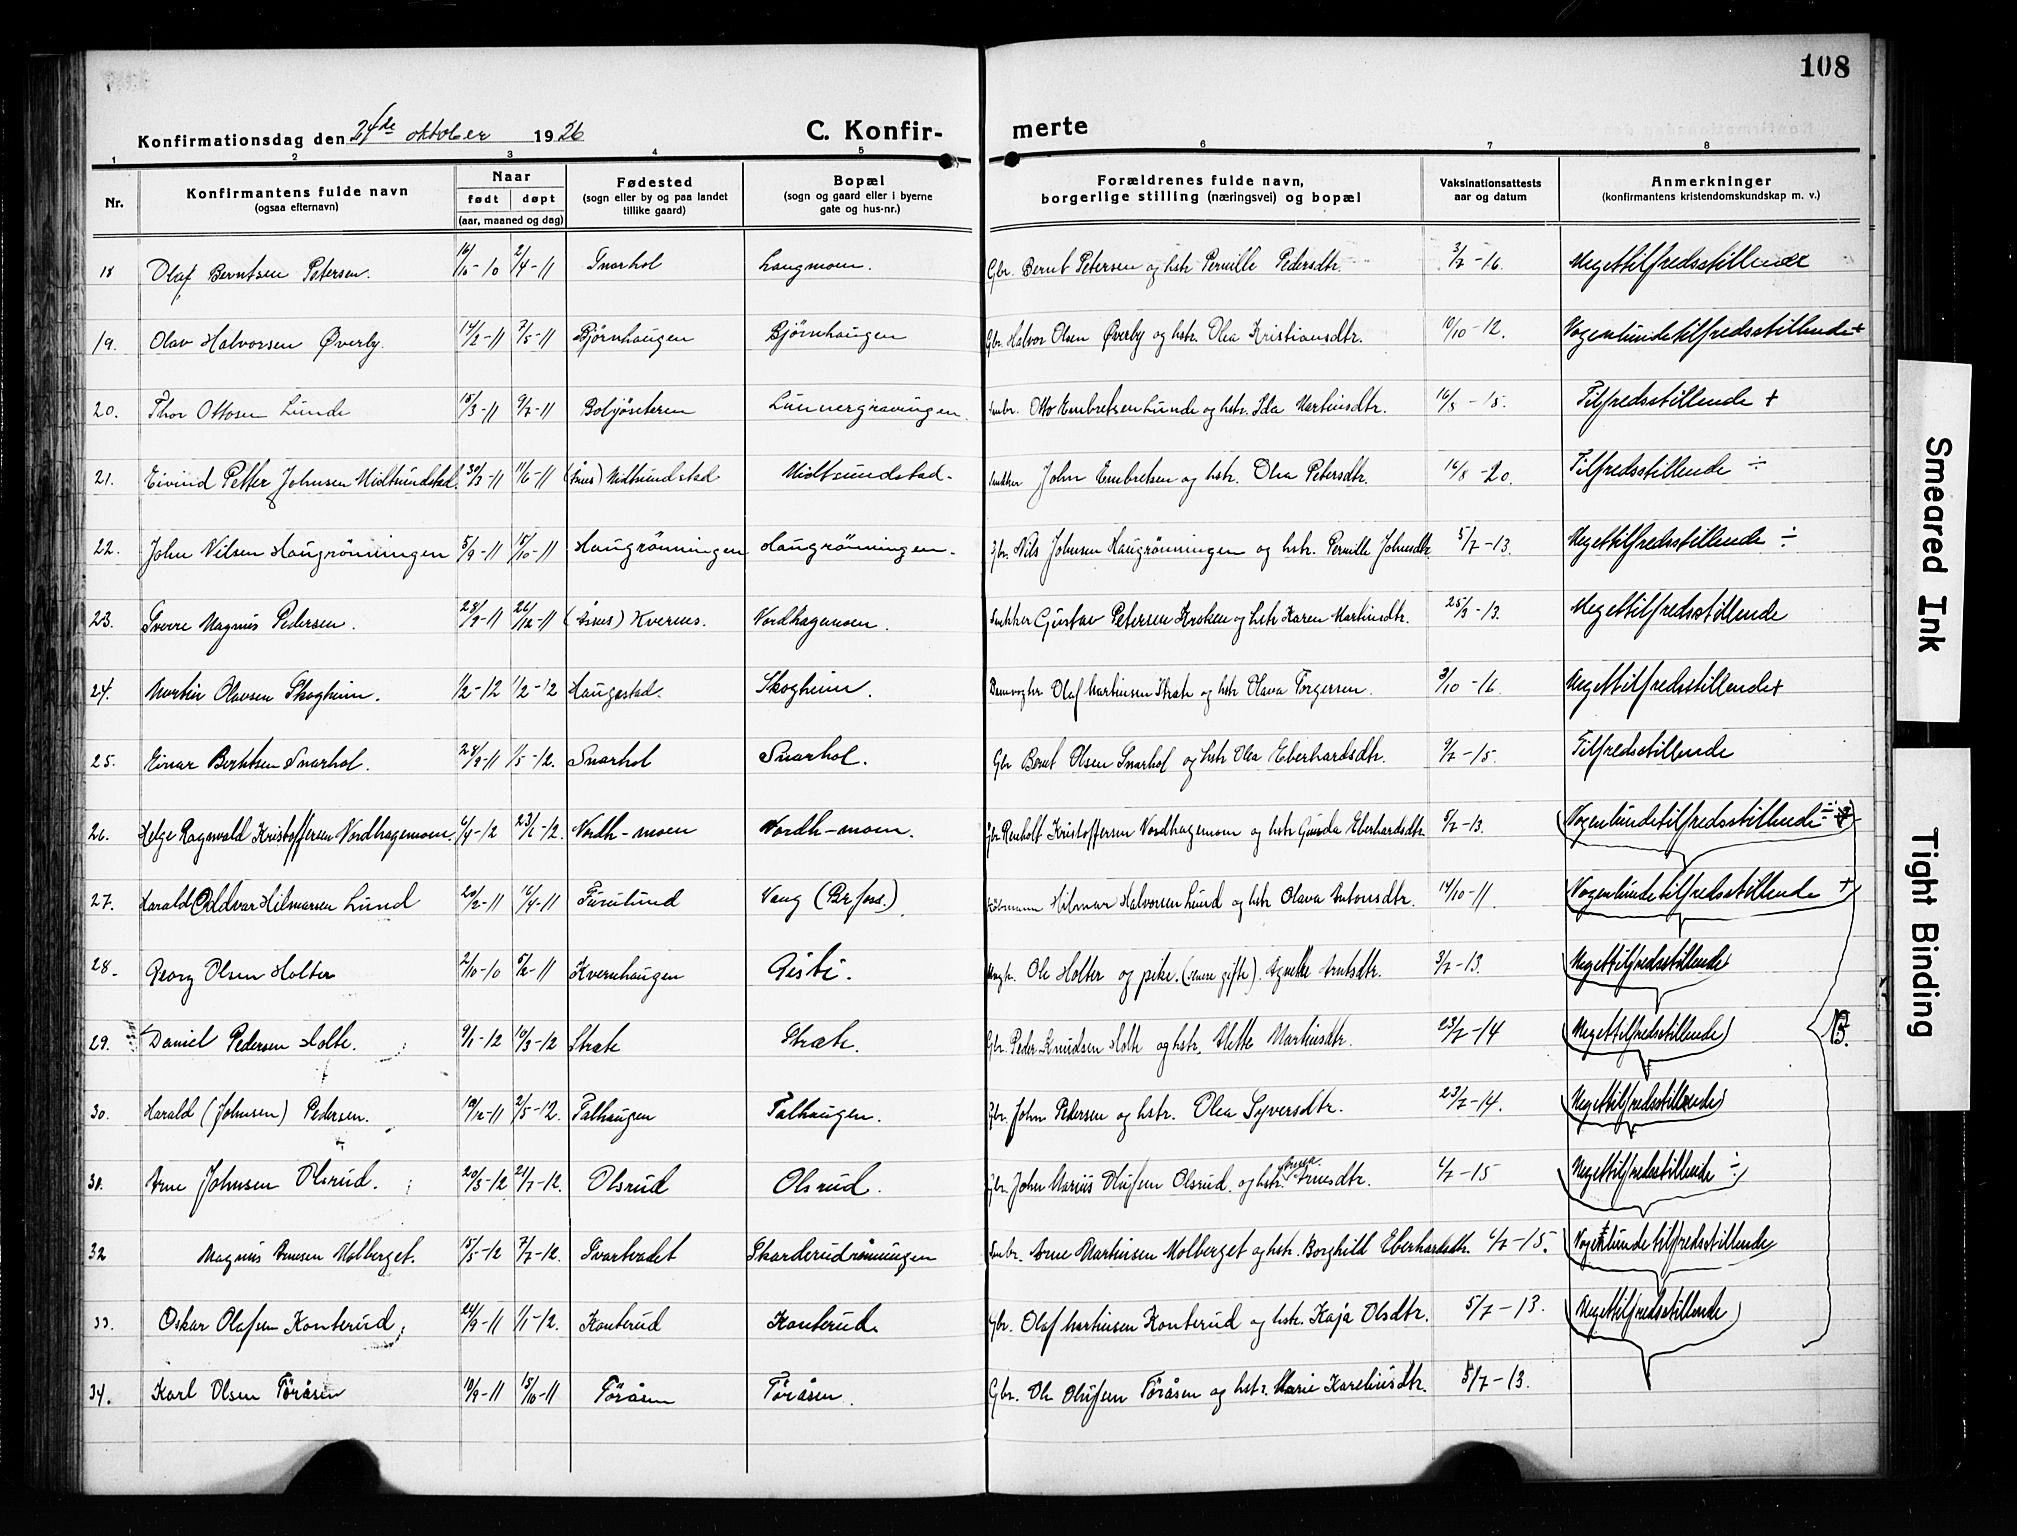 108
Konfirmationsdag den 24de oktober 1926 C. Konfirmerte
1 2 3 4 5 6 7 8
Nr. Konfirmantens fulde navn (ogsaa efternavn) Naar født døpt (aar, maaned og dag) Fødested (sogn eller by og paa landet tillike gaard) Bopæl (sogn og gaard eller i byerne gate og hus-nr.) Forældrenes fulde navn, borgerlige stilling (næringsvei) og bopæl Vaksinationsattests aar og datum Anmerkninger (konfirmantens kristendomskundskap m. v.)
18 Olaf Berntsen Petersen. 16/10-10 2/4-11 Snarhol Langmoen. Gbr. Bernt Petersen og hstr Pernille Pedersdtr. 3/7-16. Megettilfredsstillende
19. Olav Halvorsen Øverby. 14/2-11 7/5-11 Bjørnhaugen Bjørnhaugen Gbr. Halvor Olsen Øverby og hstr. Olea Kristiansdtr. 10/10-12. Nogenlundetilfredsstillende+
20. Thor Ottosen Lunde 18/3-11 9/7-11 Boljøseteren Lunnergravingen. Smbr. Otto Embretsen Lunde og hstr. Ida Martinsdtr. 16/5-15. Tilfredsstillende +
21. Eivind Petter Johnsen Midtsundstad. 30/3-11 11/6-11 (Åsnes) Midtsundstad Midtsundstad. Snekker John Embretsen og hstr. Olea Petersdtr. 16/8-20. Tilfredsstillende ÷
22. John Nilsen Haugrönningen 5/9-11 15/10-11 Haugrönningen Haugrönningen. Gbr. Nils Johnsen Haugrönningen og hstr. Pernille Johnsdtr. 5/7-13. Megettilfredsstillende ÷
23. Sverre Magnus Pedersen. 28/9-11 26/12-11 (Åsnes) Kvernes. Nordhagamoen. Snekker Gustav Petersen Kroken og hstr Karen Martinsdtr. 25/9-13. Megettilfredsstillende
24. Martin Olavsen Skogheim. 1/2-12 1/2-12 Haugestad. Skogheim. Damvogter Olaf Martinsen Stræte og hstr Olava Torgersen. 3/10-16. Megettilfredsstillende+
25. Einar Berntsen Snarhol. 28/9-11 1/5-12. Snarhol Snarhol. Gbr Bernt Olsen Snarhol og hstr Olea Eberhardsdtr. 9/7-15. Tilfredsstillende
26. Helge Ragnvald Kristoffersen Nordhagemoen. 6/4-12 23/6-12. Nordh-moen Nordh-moen. Gbr. Renholt Kristoffersen Nordhagemoen og hstr Gunda Eberhardsdtr. 5/7-13. Nogenlundetilfredsstillende ÷
27. Harald Oddvar Hilmarsen Lund 20/2-11 16/4-11 Furulund Vang (Br. foss.). Hilmar Halvorsen Lund og hstr Olava Antonsdtr. 14/10-11. Nogenlundetilfredsstillende +
28. Georg Olsen Holter 2/10-10 5/2-11 Kvernhaugen Gisti. Ungkr. Ole Holter og pike. (senere gifte). Agnethe Arntsdtr. 3/7-13. Megettilfredsstillende
29. Daniel Pedersen Holte. 9/1-12 10/3-12 Stræte Stræte. Gbr. Peder Knudsen Holte og hstr. Mette Martinsdtr. 23/7-14 Megettilfredsstillende NB.
30. Harald (Johnsen) Pedersen. 19/12-11 2/5-12. Falhaugen Falhaugen. Gbr. John Pedersen og hstr. Olea Syversdtr. 23/7-14. Megettilfredsstillende
31. Arne Johnsen Olsrud. 20/5-12 21/7-12. Olsrud Olsrud. Gbr. John Marius Olufsen Olsrud. og hstr. Arnesdtr. 6/7-15 Megettilfredsstillende ÷
32 Magnus Arnesen Molberget. 15/5-12 7/7-12. Svartvadet Skarderudrønningen Smbr. Arne Martinsen Molberget og hstr. Borghild Eberhardsdtr. 6/7-15. Nogenlundetilfredsstillende
33. Oskar Olafsen Konterud. 24/9-11 1/1-12. Konterud Konterud. Gbr. Olaf Martinsen Konterud og hstr. Kaja Olsdtr. 5/7-13. Megettilfredsstillende
34. Karl Olsen Töråsen 19/9-11 15/10-11 Töråsen Töråsen. Gbr. Ole Olufsen Töråsen og hstr. Marie Kareliusdtr. 5/7-13.
Smeared Ink
Tight Binding